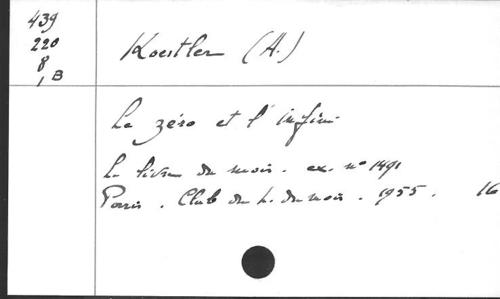 439
220
8
1 B
Koestler (A.)
Le zéro et l'infini
Le livre du mois. ex. n° 1491
Paris. Club du L. du mois. 1955. 16